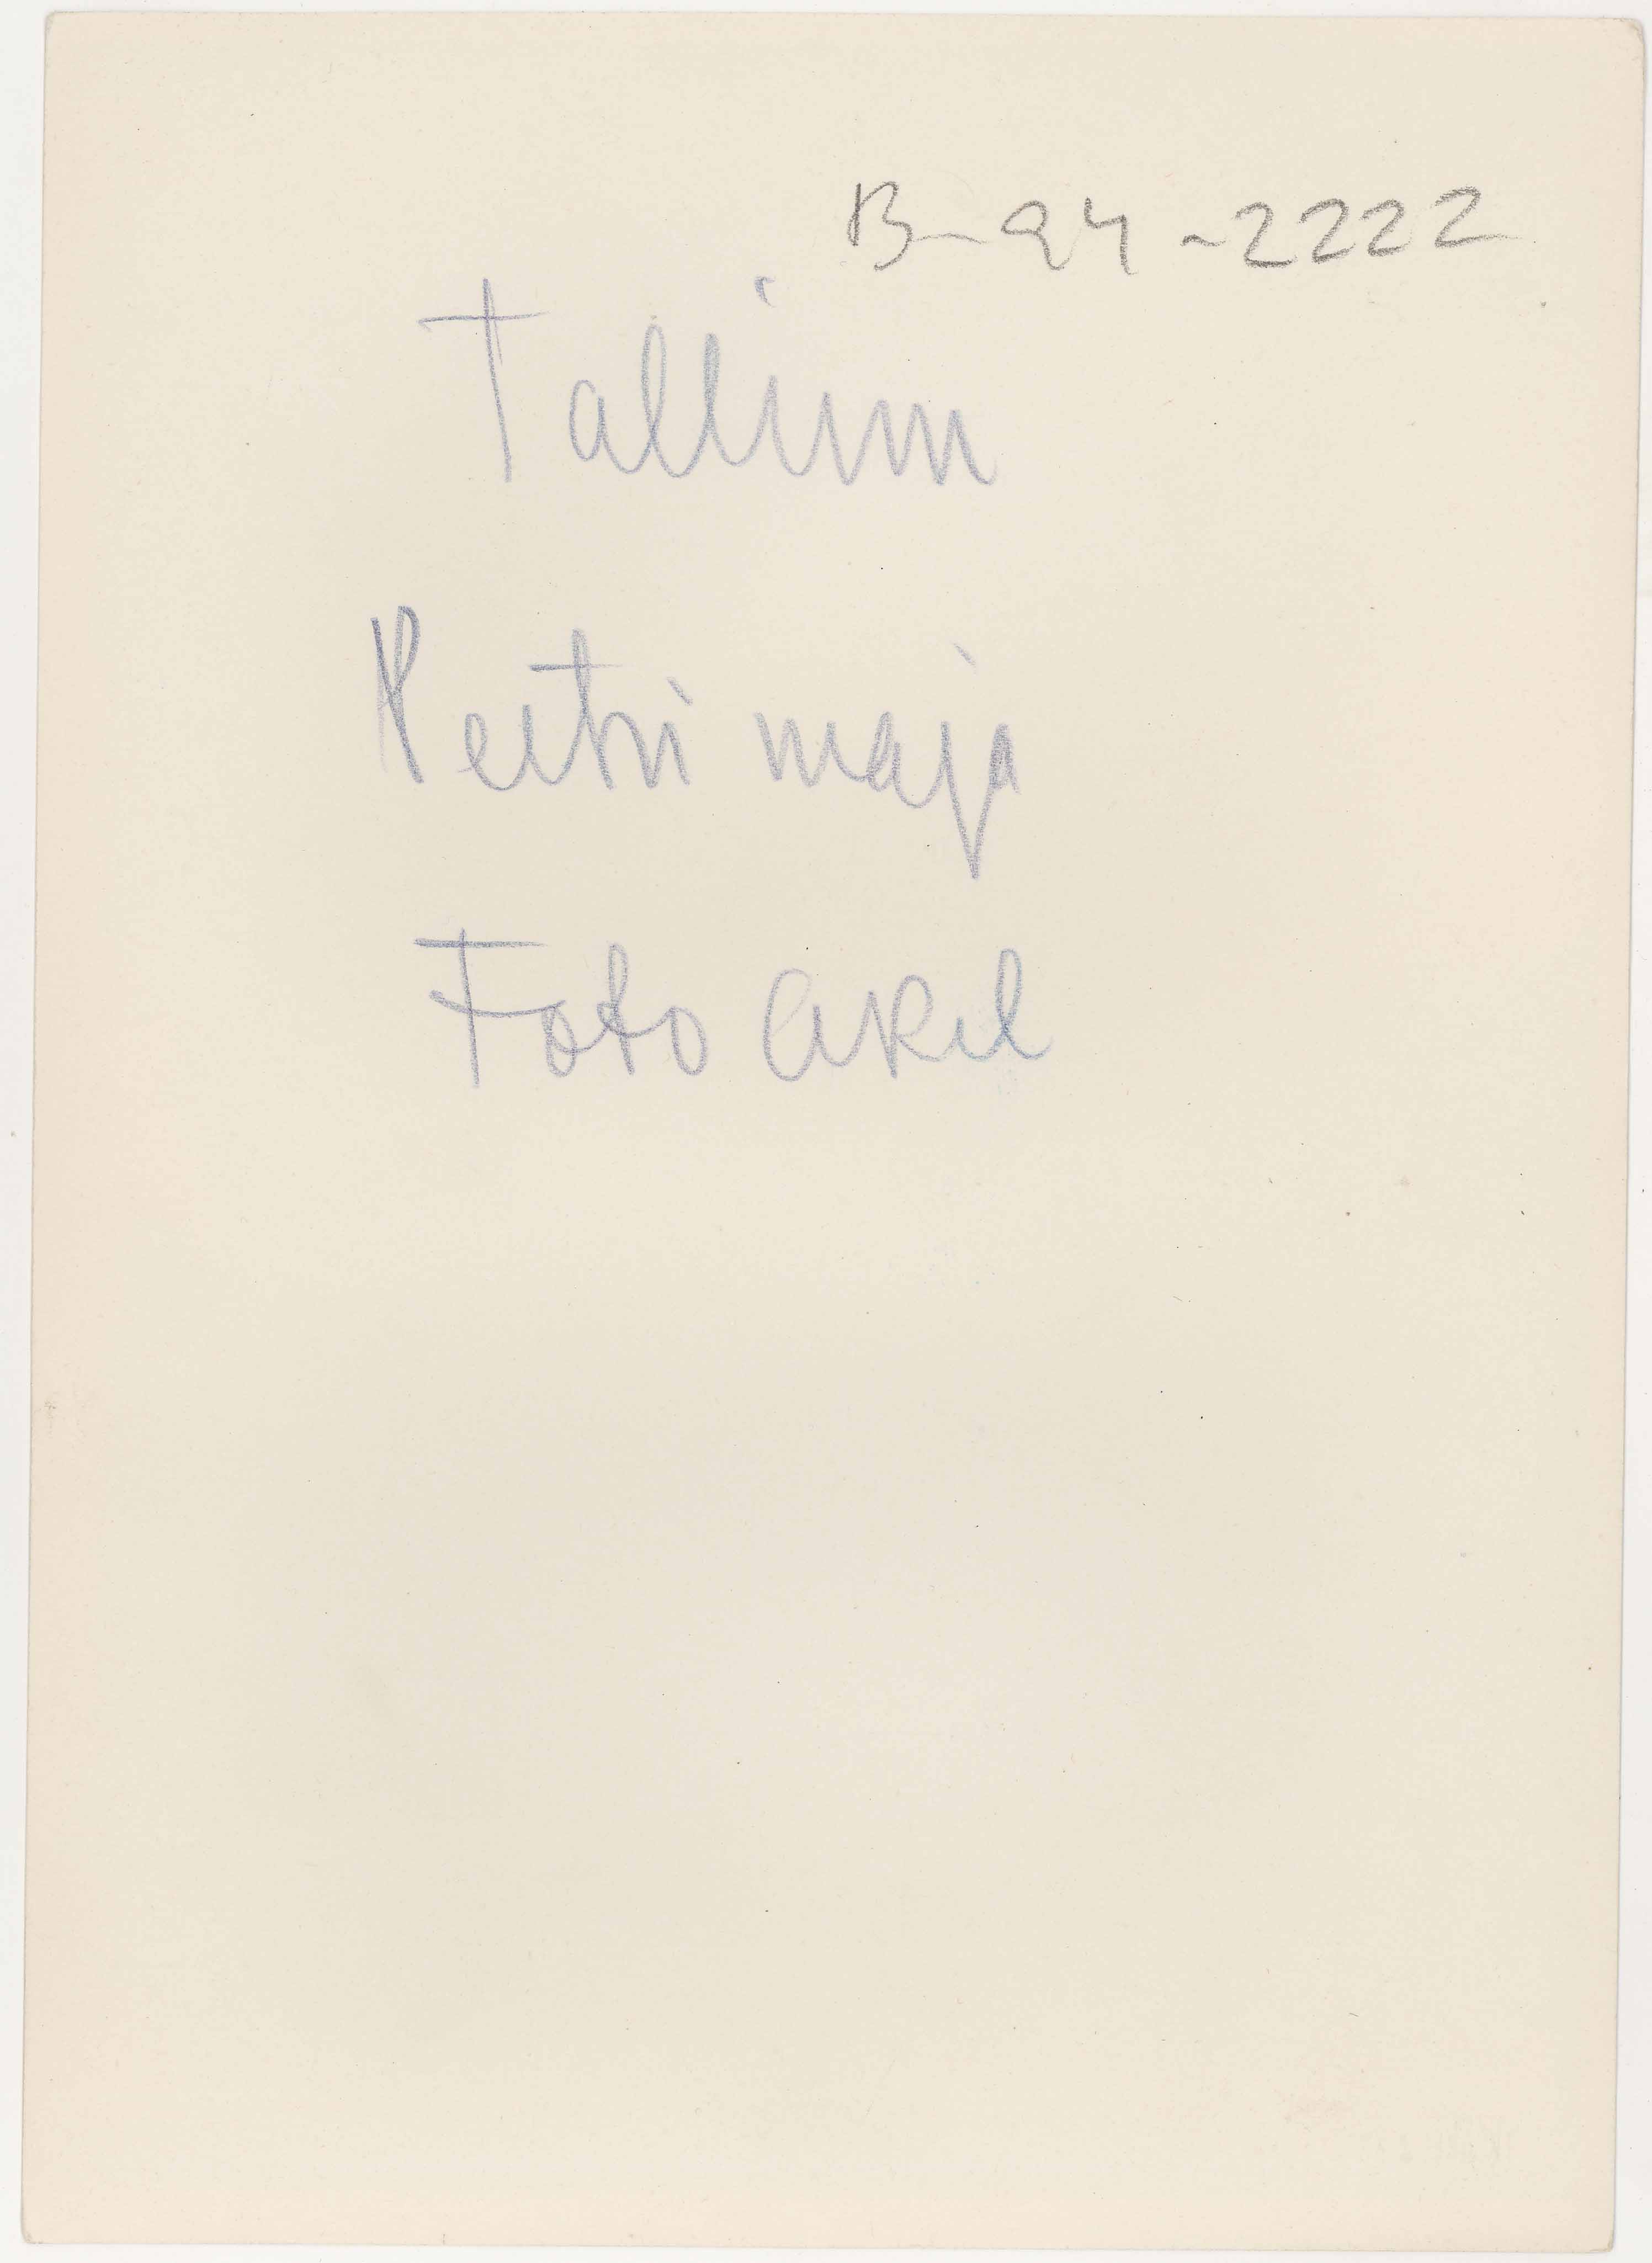 B-94-2222
Tallinn
Peetri maja
Foto Akel